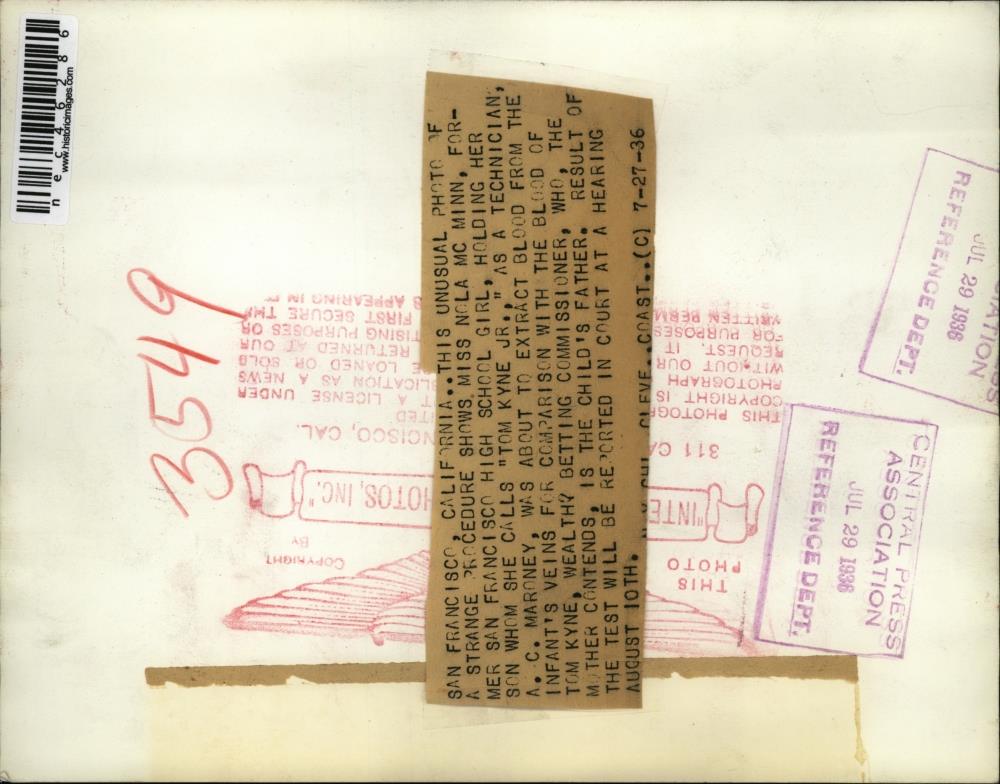 SAN FRANCISCO, CALIFORNIA..THIS UNUSUAL PHOTO OF
A STRANGE PROCEDURE SHOWS MISS NOLA MC MINN, FOR-
MER SAN FRANCISCO HIGH SCHOOL GIRL, HOLDING HER
SON WHOM SHE CALLS "TOM KYNE JR.," AS A TECHNICIAN,
A. C. MARONEY, WAS ABOUT TO EXTRACT BLOOD FROM THE
INFANT'S VEINS FOR COMPARISON WITH THE BLOOD OF
TOM KYNE, WEALTHY BETTING COMMISSIONER, WHO, THE
MOTHER CONTENDS, IS THE CHILD'S FATHER. RESULT OF
THE TEST WILL BE REPORTED IN COURT AT A HEARING
AUGUST 10TH. CHI CLEVE..COAST..(C) 7-27-36
3549
nec46286
www.historicimages.com
THIS
PHOTO
COPYRIGHT
BY
"INTE HOTOS, INC."
311 CA NCISCO, CAL.
THIS PHOTOG
COPYRIGHT IS T A LICENSE UNDER
PHOTOGRAPH LICATION AS A NEWS
WITHOUT OUR E LOANED OR SOLD
REQUEST. IT RETURNED AT OUR
FOR PURPOSES TISING PURPOSES OR
WRITTEN PERM FIRST SECURE
APPEARING IN
CENTRAL PRESS
ASSOCIATION
JUL 29 1936
REFERENCE DEPT.
JUL 29 1936
REFERENCE DEPT.